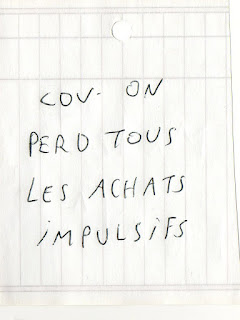 COV. ON
PERD TOUS
LES ACHATS
IMPULSIFS